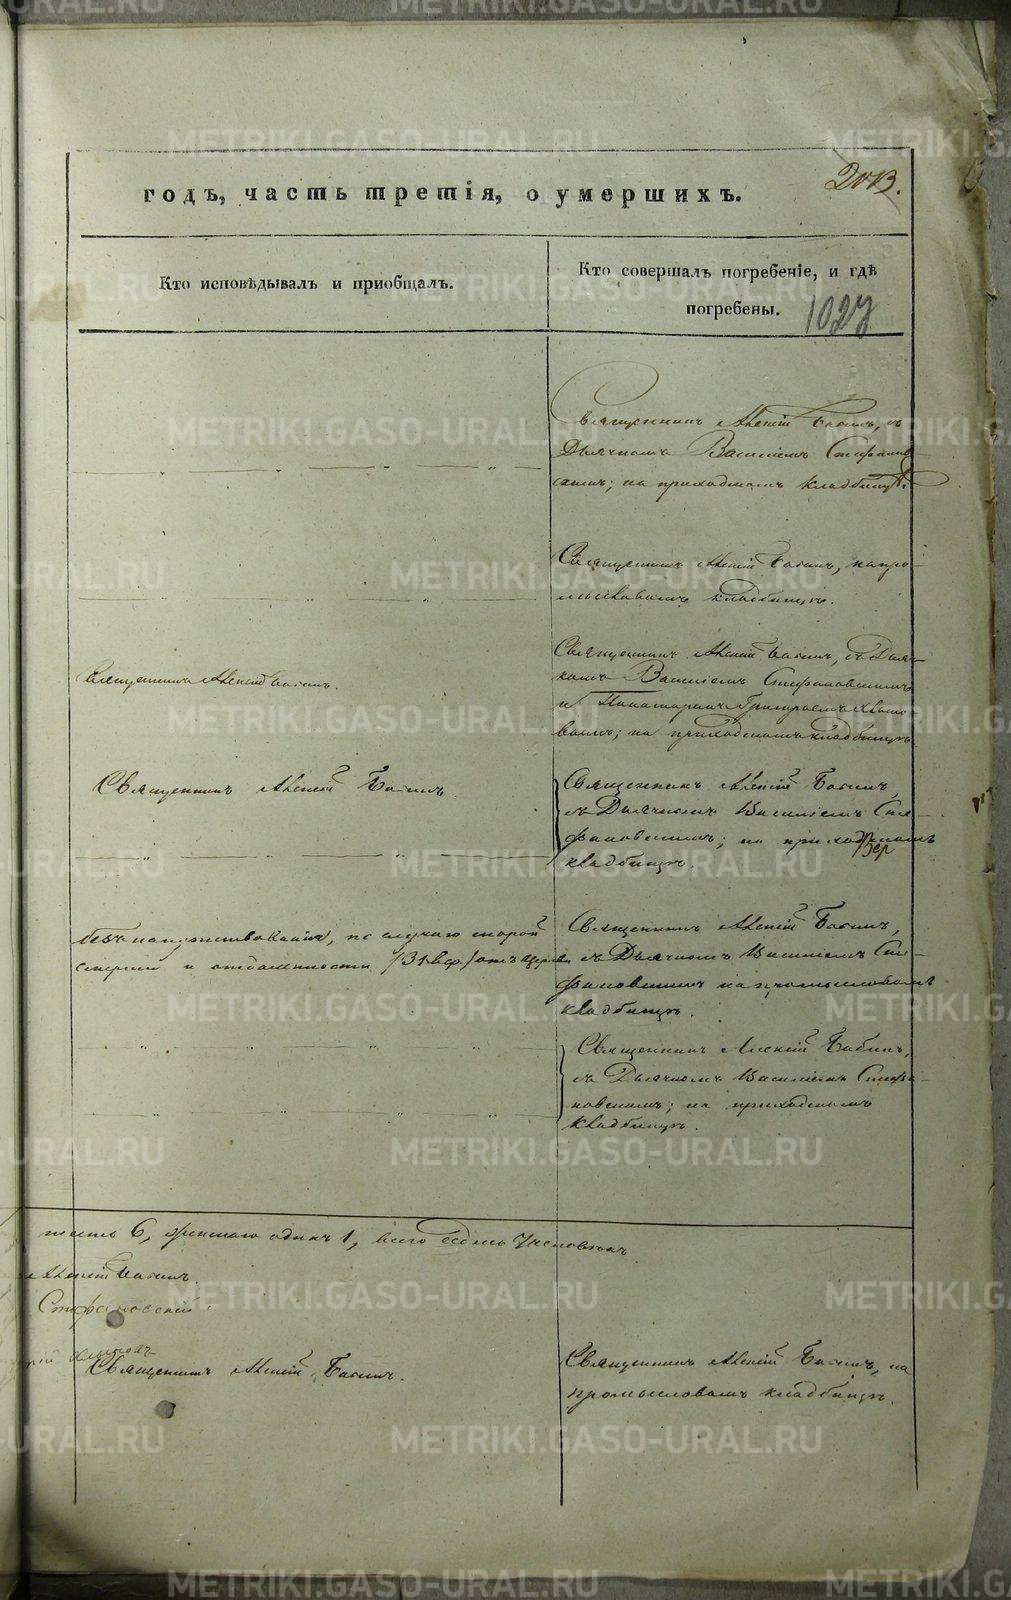 годъ, часть третія, о умершихъ.
Кто исповѣдывалъ и приобщалъ.
Кто совершалъ погребеніе, и гдѣ
погребены.
1027
Священникъ Алексій Бабинъ, съ
Дьячкомъ Василіемъ Стефанов-
скимъ; на приходскомъ кладбищѣ.
Священникъ Алексій Бабинъ, на про-
мысловомъ кладбищѣ.
Священникъ Алексій Бабинъ.
Священникъ Алексій Бабинъ, съ Дьяч-
комъ Василіемъ Стефановскимъ
и Пономаремъ Григоріемъ
на приходскомъ кладбищѣ
Священникъ Алексій Бабинъ.
Священникъ Алексій Бабинъ,
съ Дьячкомъ Василіемъ Сте-
фановскимъ; на приходскомъ
кладбищѣ.
безъ напутствованія, по случаю скорой
смерти и отдаленности /31 вер./ отъ церкви
Священникъ Алексій Бабинъ,
съ Дьячкомъ Василіемъ Сте-
фановскимъ на промысловомъ
кладбищѣ.
Священникъ Алексій Бабинъ,
съ Дьячкомъ Василіемъ Стефа-
новскимъ; на приходскомъ
кладбищѣ.
6, женскаго одна 1, всего седмь 7 человѣкъ
Алексій Бабинъ.
Стефановскій
Священникъ Алексій Бабинъ.
Священникъ Алексій Бабинъ, на
промысловомъ кладбищѣ.
METRIKI.GASO-URAL.RU